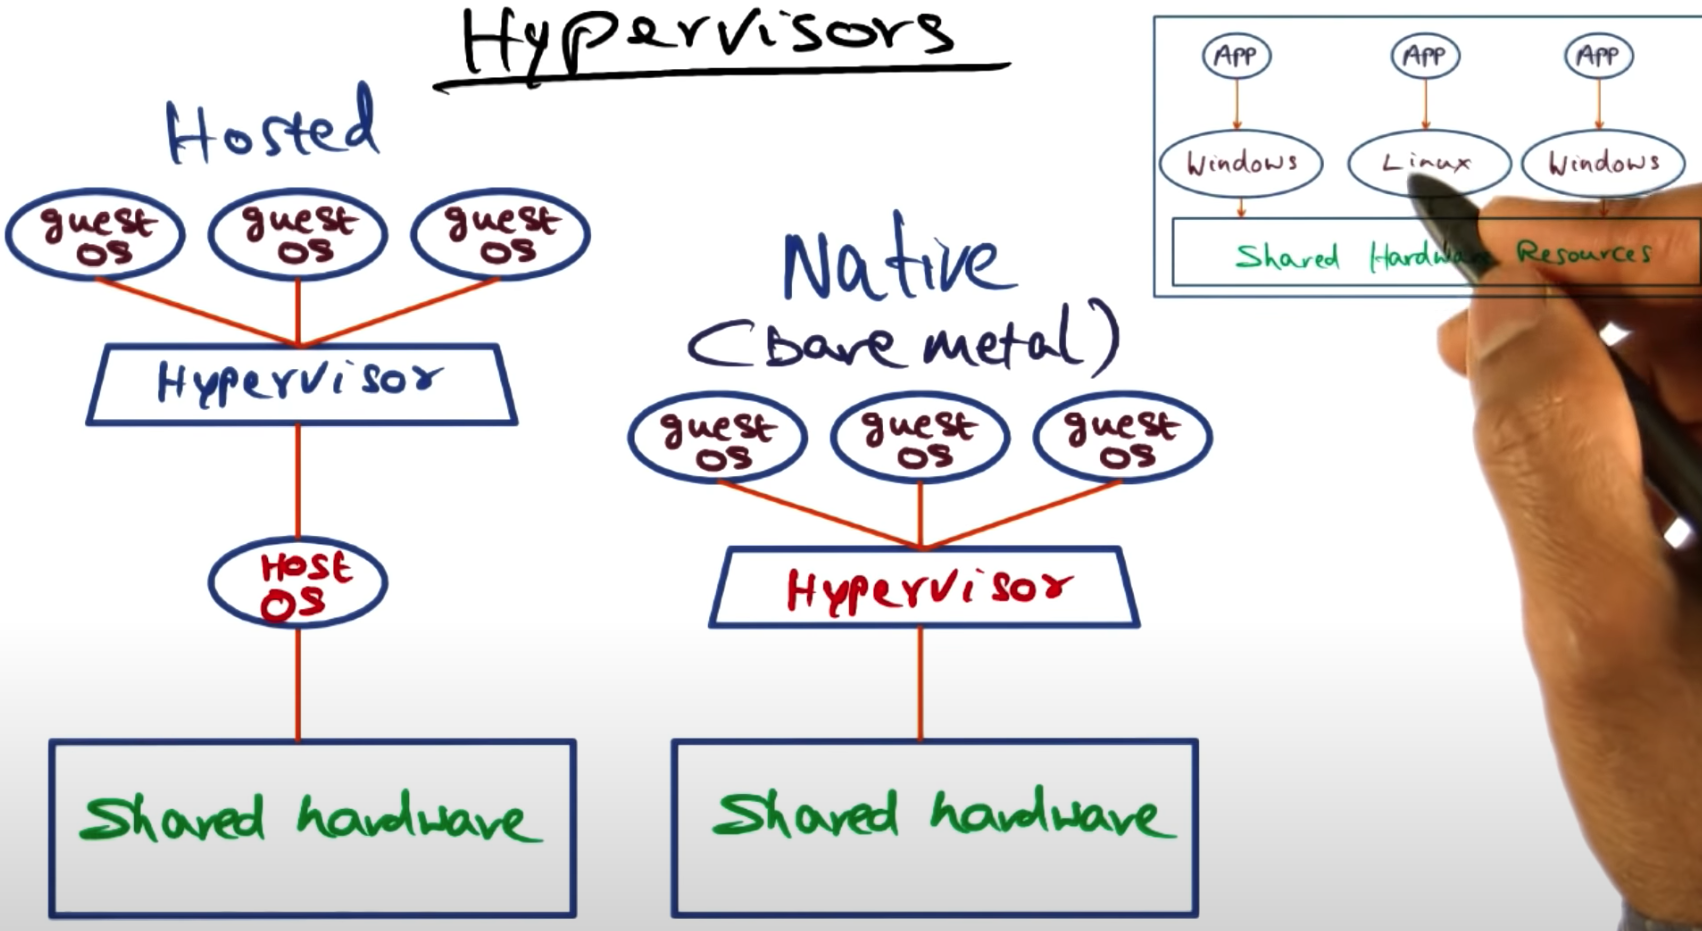 Hypervisors
Hosted
guest OS
guest OS
guest OS
Hypervisor
Host OS
Shared hardware
Native
(bare metal)
guest OS
guest OS
guest OS
Hypervisor
Shared hardware
App
App
App
Windows
Linux
Windows
Shared Hardware Resources